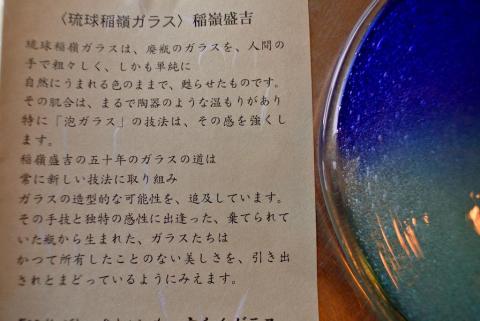 〈琉球稲嶺ガラス〉稲嶺盛吉
琉球稲嶺ガラスは、廃瓶のガラスを、人間の
手で粗々しく、しかも単純に
自然にうまれる色のままで、甦らせたものです。
その肌合は、まるで陶器のような温もりがあり
特に「泡ガラス」の技法は、その感を強くし
ます。
稲嶺盛吉の五十年のガラスの道は
常に新しい技法に取り組み
ガラスの造型的な可能性を、追及しています。
その手技と独特の感性に出逢った、棄てられて
いた瓶から生まれた、ガラスたちは
かつて所有したことのない美しさを、引き出
されとまどっているようにみえます。